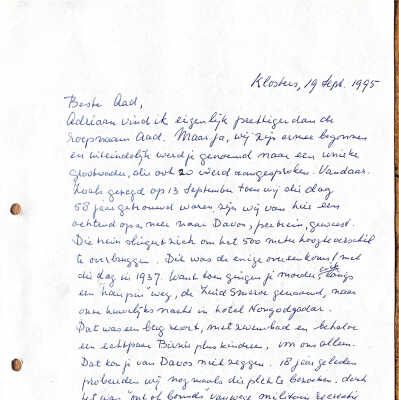 Klosters, 19 Sept. 1995
Beste Aad,
Adriaan vind ik eigenlijk prettiger dan de
roepnaam Aad. Maar ja, wij zijn ermee begonnen
en uiteindelijk werd je genoemd naar een unieke
grootvader, die ook zo werd aangesproken. Vandaar.
Zoals gezegd op 13 September toen wij die dag
58 jaar getrouwd waren zijn wij van hier een
ochtend op en neer naar Davos, per trein, geweest.
Die trein slingert zich om het 500 meter hoogteverschil
te overbruggen. Die was de enige overeenkomst met
die dag in 1937. Want toen gingen je moeder en ik langs
een "hairpin" weg, de Zuid Smeroe genaamd, naar
onze huwelijksnacht in hotel Nongodjadjar.
Dat was een berg resort, met zwembad en behalve
een echtpaar Bivins plus kinderen, von ons alleen.
Dat kon je van Davos niet zeggen. 18 jaar geleden
probeerden wij nogmaals die plek te bezoeken, doch
het was "out of bounds" vanwege militaire recreatie